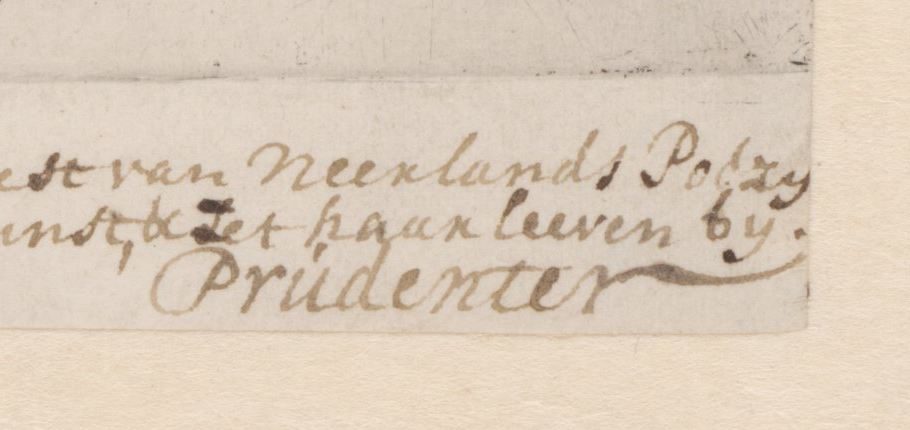 est van Neerlands Poëzy
unst, & Zet haar leeven by.
Prüdenter